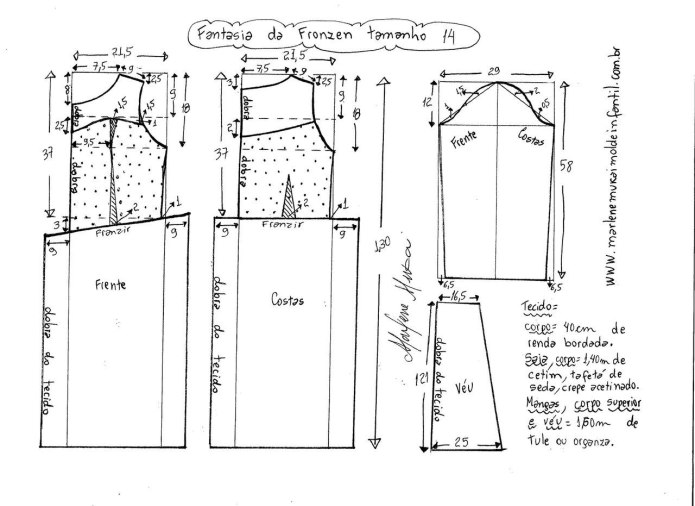 Fantasia da Fronzen tamanho 14
21,5
7,5
9
2,5
8
9
18
1,5
1,5
1
2,5
dobra
37
9,5
dobra
2
1
3
Franzir
9
9
Frente
dobra do tecido
21,5
7,5
9
2,5
3
9
18
dobra
2
37
dobra
2
1
9
Franzir
9
Costas
dobra do tecido
1,30
Marlene Mukai
29
12
1,5
2
1
0,5
Frente
Costas
58
6,5
6,5
16,5
121
dobra do tecido
Véu
25
www.marlenemukaimoldeinfantil.com.br
Tecido=
corpo= 40cm de
renda bordada.
Saia, corpo= 1,40m de
cetim, tafetá de
seda, crepe acetinado.
Mangas, corpo superior
e véu = 1,50m de
tule ou organza.